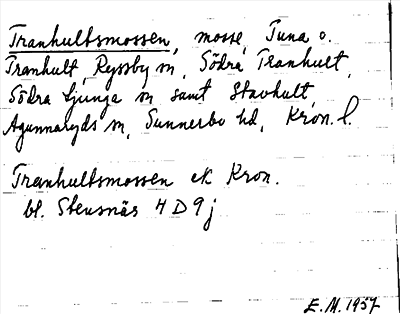 Tranhultsmossen, mosse, Tuna o.
Tranhult, Ryssby sn, Södra Tranhult,
Södra Ljunga sn samt Stavhult,
Agunnaryds sn, Sunnerbo hd, Kron. l.
Tranhultsmossen ek Kron.
bl. Stensnäs 4 D 9 j
E. M. 1957